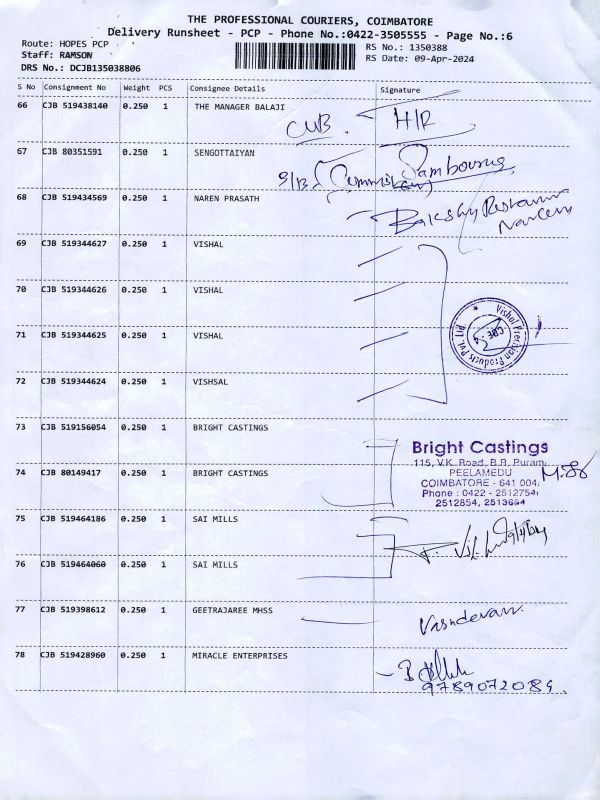 THE PROFESSIONAL COURIERS, COIMBATORE
Delivery Runsheet - PCP - Phone No.:0422-3505555 - Page No.:6
Route: HOPES PCP
RS No.: 1350388
Staff: RAMSON
RS Date: 09-Apr-2024
DRS No.: DCJB135038806
S No Consignment No Weight PCS Consignee Details Signature
66 CJB 519438140 0.250 1 THE MANAGER BALAJI
CUB. H/R
67 CJB 80351591 0.250 1 SENGOTTAIYAN
68 CJB 519434569 0.250 1 NAREN PRASATH
69 CJB 519344627 0.250 1 VISHAL
70 CJB 519344626 0.250 1 VISHAL
71 CJB 519344625 0.250 1 VISHAL
Vishal Precision Products Pvt. Ltd.
CBE
72 CJB 519344624 0.250 1 VISHSAL
73 CJB 519156054 0.250 1 BRIGHT CASTINGS
Bright Castings
115, V.K. Road, B.R. Puram,
PEELAMEDU
74 CJB 80149417 0.250 1 BRIGHT CASTINGS
COIMBATORE - 641 004.
Phone : 0422 - 2512754,
2512854, 2513654
75 CJB 519464186 0.250 1 SAI MILLS
76 CJB 519464060 0.250 1 SAI MILLS
77 CJB 519398612 0.250 1 GEETRAJAREE MHSS
Vasudevan.
78 CJB 519428960 0.250 1 MIRACLE ENTERPRISES
9789072089.